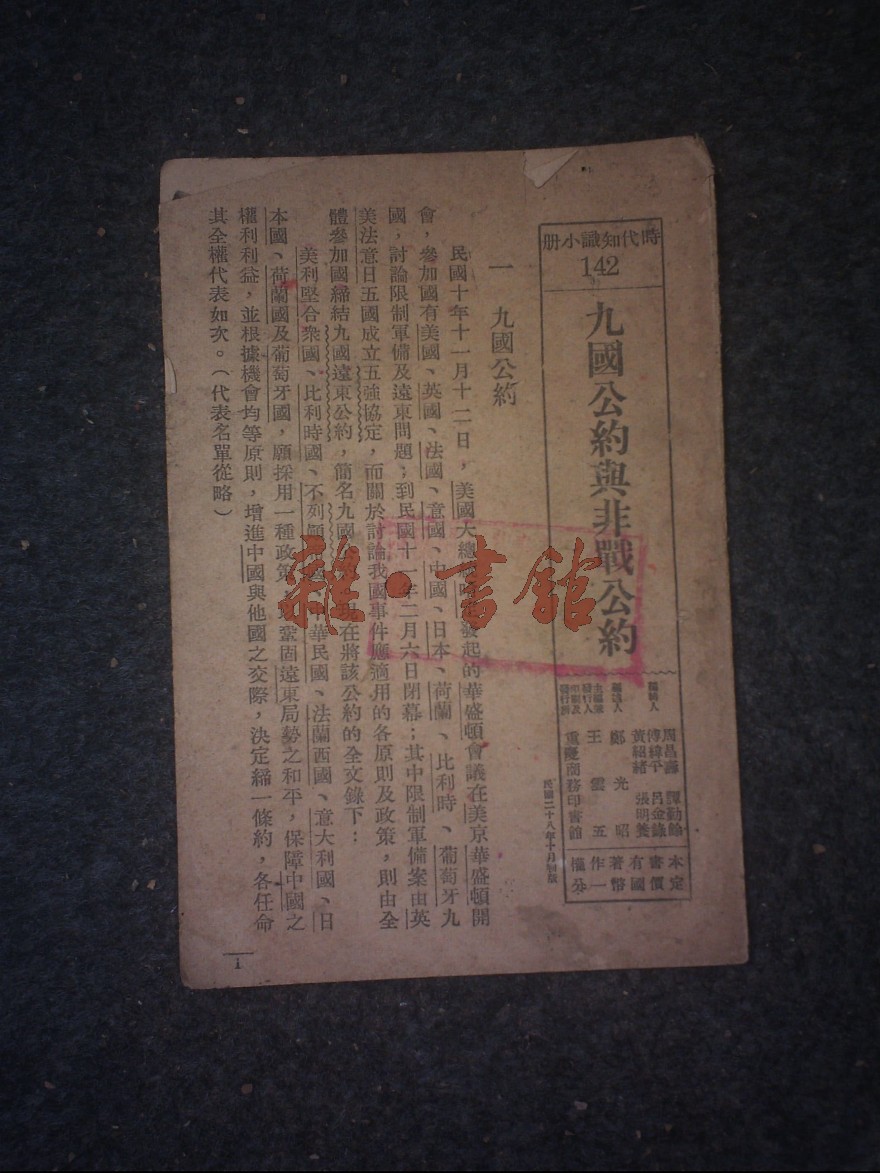 時代知識小册
142
九國公約與非戰公約
編輯人
周昌壽 譚勤餘
傅緯平 呂金錄
黃紹緒 張明養
編著人 鄭光昭
主編兼發行人 王雲五
印刷及發行所 重慶商務印書館
民國二十八年十月初版
本書有著作權
定價國幣一分
一 九國公約
民國十年十一月十二日,美國大總統發起的華盛頓會議在美京華盛頓開
會,參加國有美國、英國、法國、意國、中國、日本、荷蘭、比利時、葡萄牙九
國,討論限制軍備及遠東問題;到民國十一年二月六日閉幕;其中限制軍備案由英
美法意日五國成立五強協定,而關於討論我國事件應適用的各原則及政策,則由全
體參加國締結九國遠東公約,簡名九國在將該公約的全文錄下:
美利堅合衆國、比利時國、不列顛國、中華民國、法蘭西國、意大利國、日
本國、荷蘭國及葡萄牙國,願採用一種政策,鞏固遠東局勢之和平,保障中國之
權利利益,並根據機會均等原則,增進中國與他國之交際,決定締一條約,各任命
其全權代表如次。(代表名單從略)
1
雜·書館